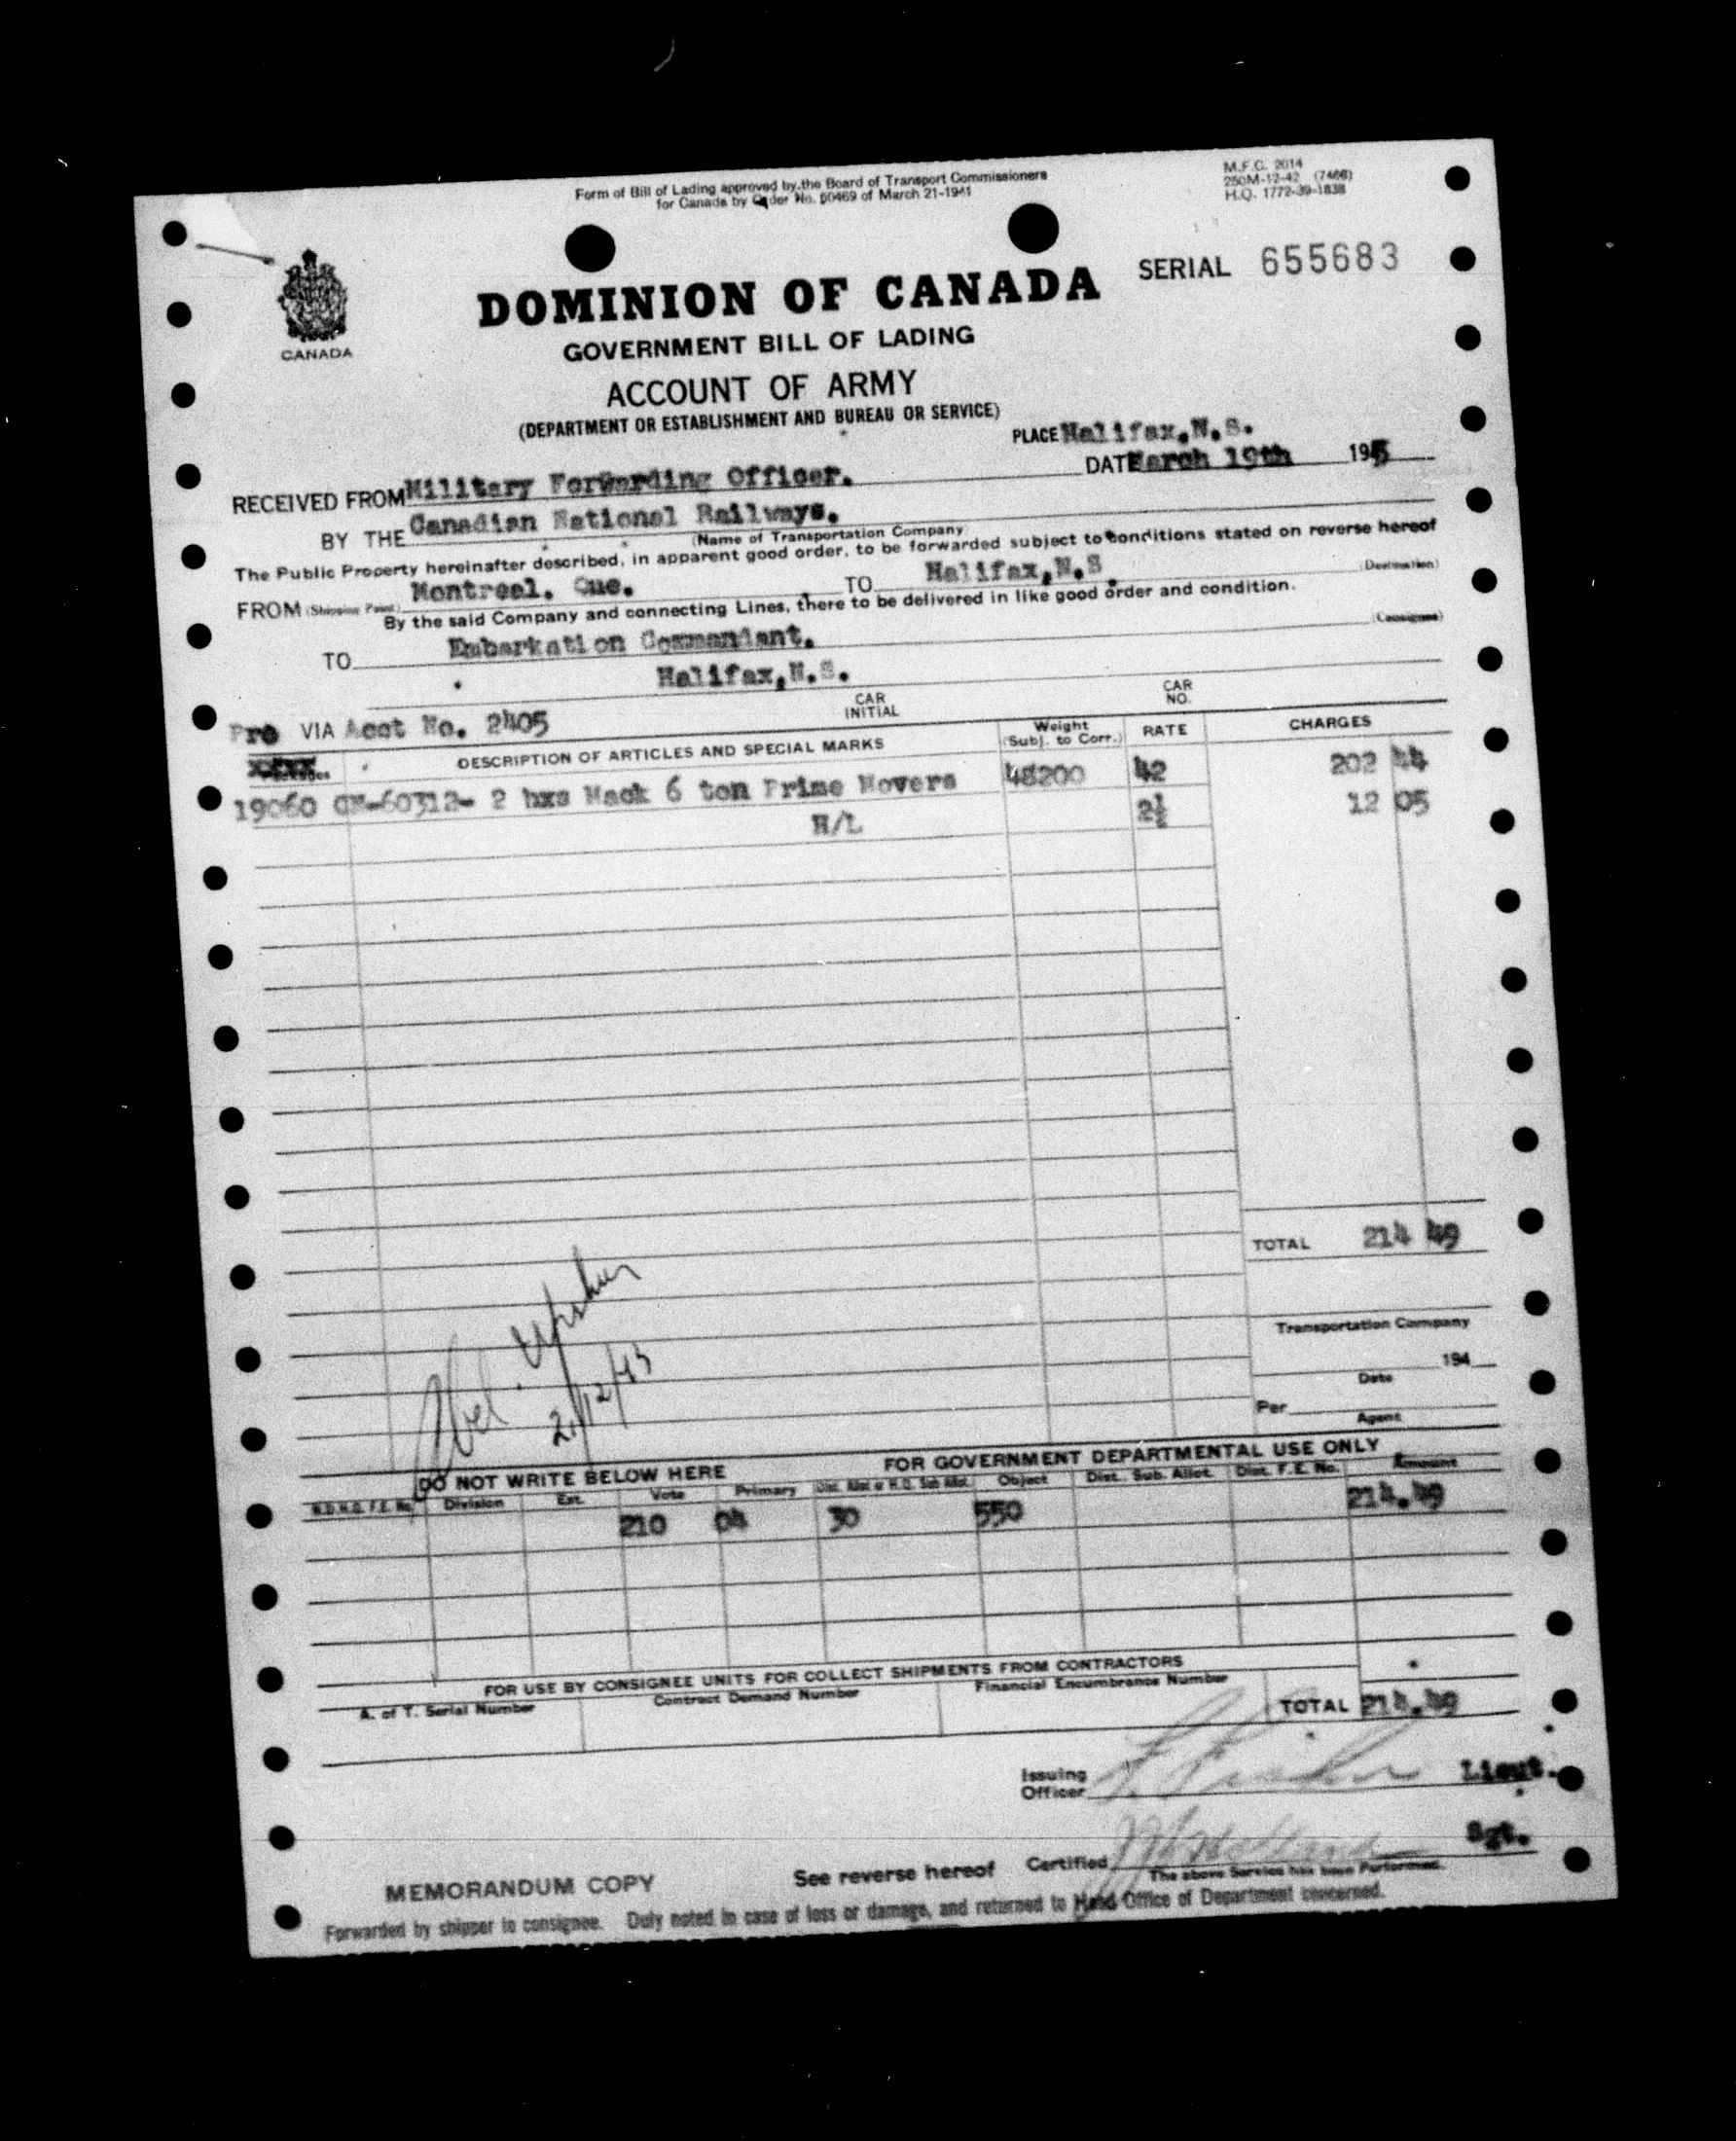 Form of Bill of Lading approved by the Board of Transport Commissioners
for Canada by Order No. 60469 of March 21-1941
M.F.C. 2014
250M-12-42 (7466)
H.Q. 1772-39-1838
CANADA
SERIAL 655683
DOMINION OF CANADA
GOVERNMENT BILL OF LADING
ACCOUNT OF ARMY
(DEPARTMENT OR ESTABLISHMENT AND BUREAU OR SERVICE)
PLACE Halifax, N.S.
DATE March 19th 195
RECEIVED FROM Military Forwarding Officer.
BY THE Canadian National Railways.
(Name of Transportation Company)
The Public Property hereinafter described, in apparent good order, to be forwarded subject to conditions stated on reverse hereof
FROM (Shipping Point) Montreal. Que. TO Halifax, N.S. (Destination)
By the said Company and connecting Lines, there to be delivered in like good order and condition.
TO Embarkation Commandant. (Consignee)
Halifax, N.S.
Pro VIA Acct No. 2405 CAR INITIAL CAR NO.
Packages DESCRIPTION OF ARTICLES AND SPECIAL MARKS Weight (Subj. to Corr.) RATE CHARGES
19060 CM-60312- 2 bxs Mack 6 ton Prime Movers 48200 42 202 44
H/L 2½ 12 05
TOTAL 214 49
Transportation Company
194
Date
Per
Agent
Abel. Upshur
21/12/43
DO NOT WRITE BELOW HERE FOR GOVERNMENT DEPARTMENTAL USE ONLY
N.D.H.Q. F.E. No. Division Est. Vote Primary Dist. Allot or H.Q. Sub Allot. Object Dist. Sub. Allot. Dist. F.E. No. Amount
210 04 30 550 214.49
FOR USE BY CONSIGNEE UNITS FOR COLLECT SHIPMENTS FROM CONTRACTORS
A. of T. Serial Number Contract Demand Number Financial Encumbrance Number TOTAL 214.49
Issuing
Officer Lieut.
Certified Sgt.
The above Service has been Performed.
MEMORANDUM COPY See reverse hereof
Forwarded by shipper to consignee. Duly noted in case of loss or damage, and returned to Head Office of Department concerned.